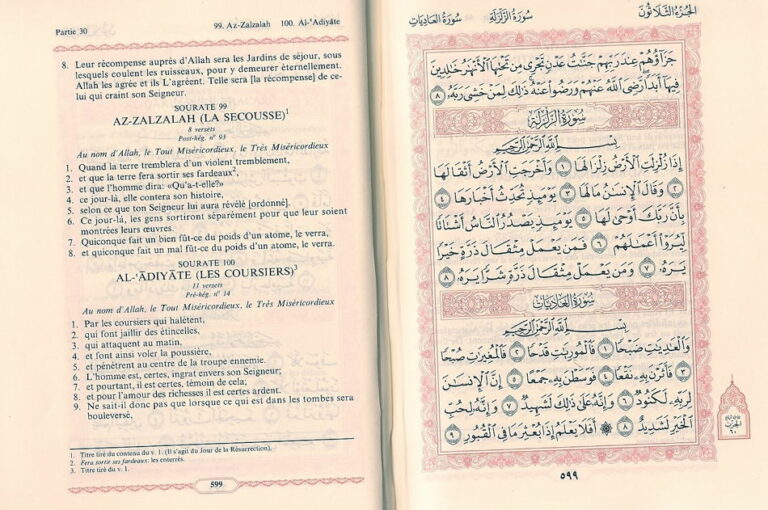 Partie 30
99. Az-Zalzalah 100. Al-ʻAdiyâte
8. Leur récompense auprès d'Allah sera les Jardins de séjour, sous
lesquels coulent les ruisseaux, pour y demeurer éternellement.
Allah les agrée et ils L'agréent. Telle sera [la récompense] de ce-
lui qui craint son Seigneur.
SOURATE 99
AZ-ZALZALAH (LA SECOUSSE)¹
8 versets
Post-hég. n° 93
Au nom d'Allah, le Tout Miséricordieux, le Très Miséricordieux
1. Quand la terre tremblera d'un violent tremblement,
2. et que la terre fera sortir ses fardeaux²,
3. et que l'homme dira: «Qu'a-t-elle?»
4. ce jour-là, elle contera son histoire,
5. selon ce que ton Seigneur lui aura révélé [ordonné].
6. Ce jour-là, les gens sortiront séparément pour que leur soient
montrées leurs œuvres.
7. Quiconque fait un bien fût-ce du poids d'un atome, le verra,
8. et quiconque fait un mal fût-ce du poids d'un atome, le verra.
SOURATE 100
AL-ʻĀDIYĀTE (LES COURSIERS)³
11 versets
Pré-hég. n° 14
Au nom d'Allah, le Tout Miséricordieux, le Très Miséricordieux
1. Par les coursiers qui halètent,
2. qui font jaillir des étincelles,
3. qui attaquent au matin,
4. et font ainsi voler la poussière,
5. et pénètrent au centre de la troupe ennemie.
6. L'homme est, certes, ingrat envers son Seigneur;
7. et pourtant, il est certes, témoin de cela;
8. et pour l'amour des richesses il est certes ardent.
9. Ne sait-il donc pas que lorsque ce qui est dans les tombes sera
bouleversé,
1. Titre tiré du contenu du v. 1. (Il s'agit du Jour de la Résurrection).
2. Fera sortir ses fardeaux: les enterrés.
3. Titre tiré du v. 1.
599
الجزء الثلاثون
سورة الزلزلة
سورة العاديات
جَزَآؤُهُمْ عِندَ رَبِّهِمْ جَنَّٰتُ عَدْنٍ تَجْرِي مِن تَحْتِهَا ٱلْأَنْهَٰرُ خَٰلِدِينَ
فِيهَآ أَبَدًا رَّضِيَ ٱللَّهُ عَنْهُمْ وَرَضُواْ عَنْهُ ذَٰلِكَ لِمَنْ خَشِيَ رَبَّهُۥ ٨
سُورَةُ الزَّلْزَلَةِ
بِسْمِ ٱللَّهِ ٱلرَّحْمَٰنِ ٱلرَّحِيمِ
إِذَا زُلْزِلَتِ ٱلْأَرْضُ زِلْزَالَهَا ١ وَأَخْرَجَتِ ٱلْأَرْضُ أَثْقَالَهَا
٢ وَقَالَ ٱلْإِنسَٰنُ مَا لَهَا ٣ يَوْمَئِذٍ تُحَدِّثُ أَخْبَارَهَا ٤
بِأَنَّ رَبَّكَ أَوْحَىٰ لَهَا ٥ يَوْمَئِذٍ يَصْدُرُ ٱلنَّاسُ أَشْتَاتًا
لِّيُرَوْاْ أَعْمَٰلَهُمْ ٦ فَمَن يَعْمَلْ مِثْقَالَ ذَرَّةٍ خَيْرًا
يَرَهُۥ ٧ وَمَن يَعْمَلْ مِثْقَالَ ذَرَّةٍ شَرًّا يَرَهُۥ ٨
سُورَةُ العَادِيَاتِ
بِسْمِ ٱللَّهِ ٱلرَّحْمَٰنِ ٱلرَّحِيمِ
وَٱلْعَٰدِيَٰتِ ضَبْحًا ١ فَٱلْمُورِيَٰتِ قَدْحًا ٢ فَٱلْمُغِيرَٰتِ صُبْحًا
٣ فَأَثَرْنَ بِهِۦ نَقْعًا ٤ فَوَسَطْنَ بِهِۦ جَمْعًا ٥ إِنَّ ٱلْإِنسَٰنَ
لِرَبِّهِۦ لَكَنُودٌ ٦ وَإِنَّهُۥ عَلَىٰ ذَٰلِكَ لَشَهِيدٌ ٧ وَإِنَّهُۥ لِحُبِّ
ٱلْخَيْرِ لَشَدِيدٌ ٨ ۞ أَفَلَا يَعْلَمُ إِذَا بُعْثِرَ مَا فِي ٱلْقُبُورِ ٩
الحزب
٦٠
٥٩٩